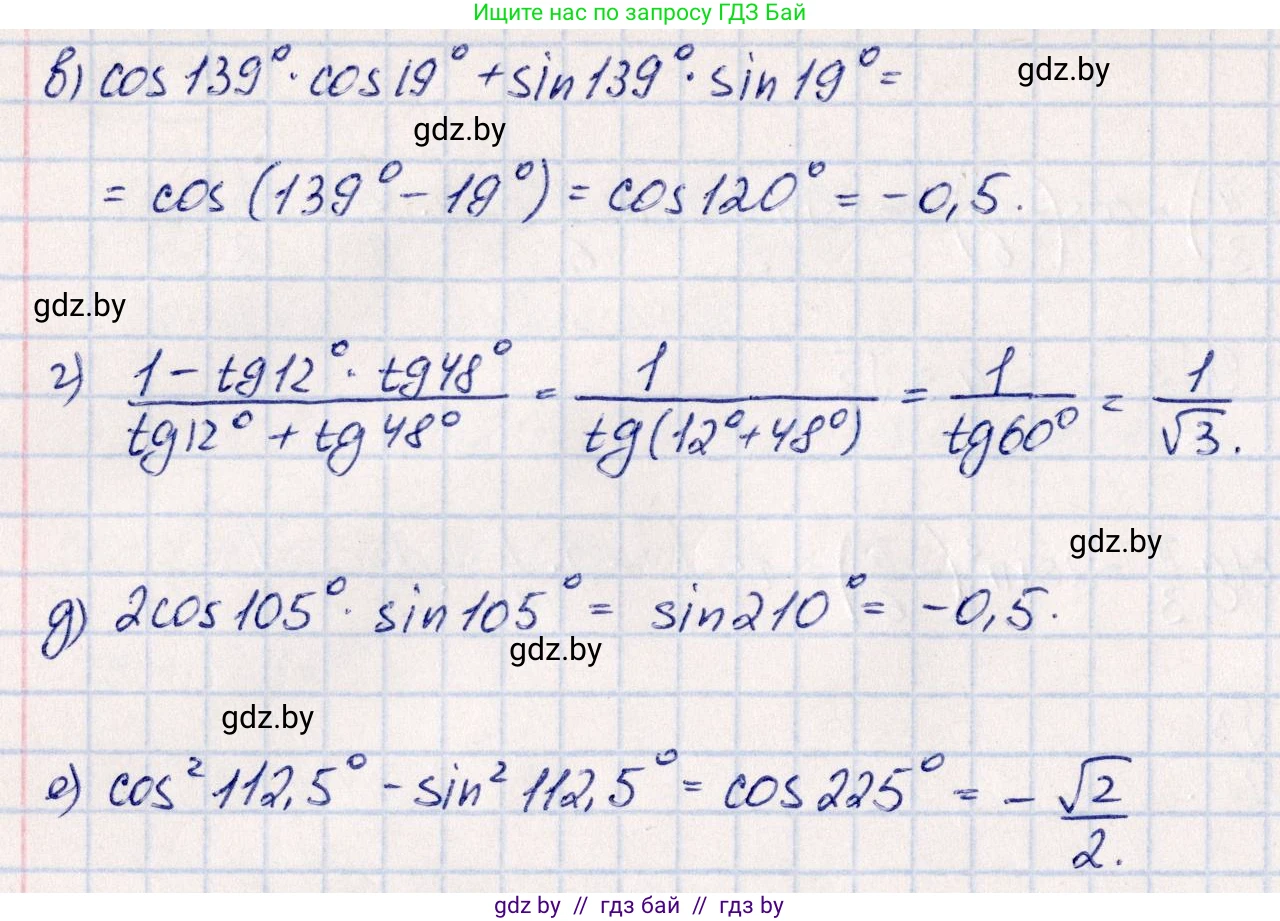 Ищите нас по запросу ГДЗ Бай
в) cos 139° · cos 19° + sin 139° · sin 19° =
gdz.by
gdz.by
= cos (139° − 19°) = cos 120° = −0,5.
gdz.by
г) (1 − tg 12° · tg 48°)/(tg 12° + tg 48°) = 1/(tg (12° + 48°)) = 1/(tg 60°) = 1/√3.
gdz.by
д) 2 cos 105° · sin 105° = sin 210° = −0,5.
gdz.by
gdz.by
е) cos² 112,5° − sin² 112,5° = cos 225° = − √2/2.
gdz by // гдз бай // гдз by